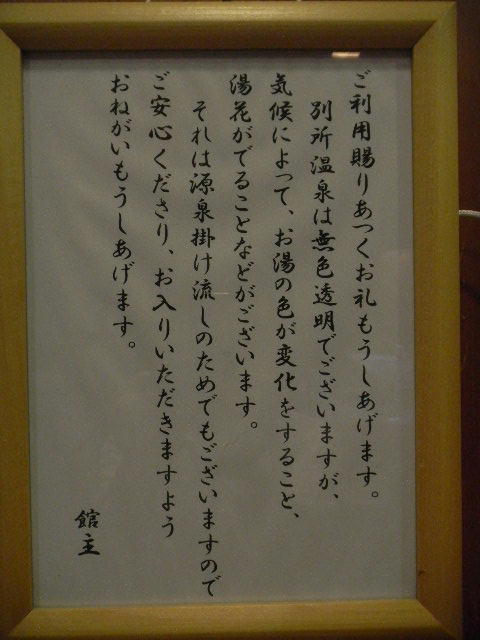 ご利用賜りあつくお礼もうしあげます。
別所温泉は無色透明でございますが、
気候によって、お湯の色が変化をすること、
湯花がでることなどがございます。
それは源泉掛け流しのためでもございますので
ご安心くださり、お入りいただきますよう
おねがいもうしあげます。
館主